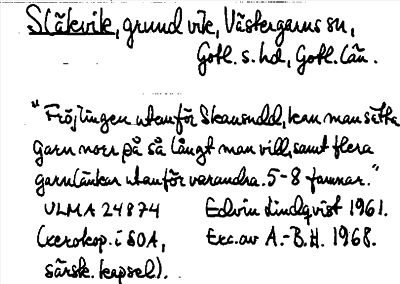 Släkvik, grund vik, Västergarns sn,
Gotl. s. hd, Gotl. län.
"Fröjlingen utanför Skansudd, kan man sätta
garn norr på så långt man vill, samt flera
garnlänkar utanför varandra. 5-8 famnar."
ULMA 24874 Edvin Lindqvist 1961.
(xerokop. i SOA, Exc. av A.-B.H. 1968.
särsk. kapsel).